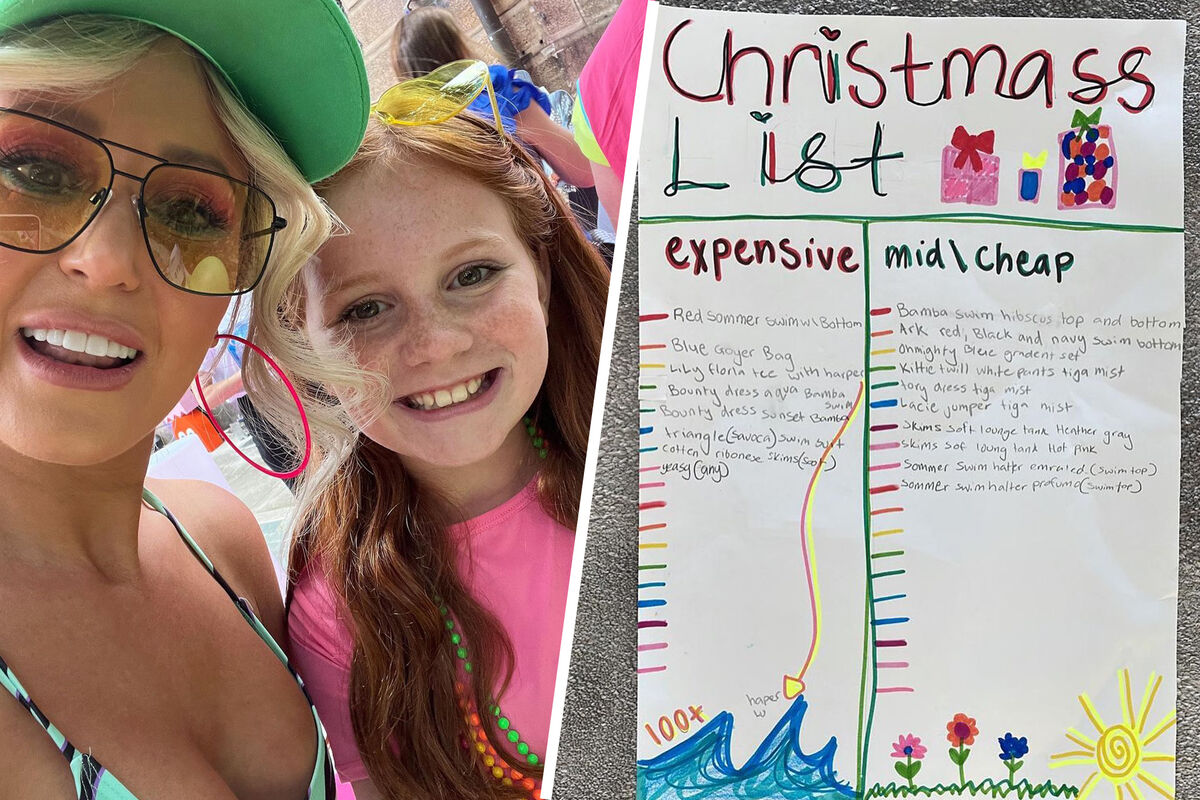 Christmass
List
expensive
Red sommer swim w\Bottom
Blue Goyer Bag
Lily floria tee with harper
Bounty dress aqua Bamba
swim
Bounty dress sunset Bamba
triangle (savoca) swim suit
cotten ribonese skims
yeasy (any)
100+
haper
mid\cheap
Bamba swim hibscus top and bottom
Ark red, Black and navy swim bottom
Onmighty Blue gradent set
Kittie twill white pants tiga mist
tory dress tiga mist
Lacie jumper tiga mist
skims soft lounge tank Heather gray
skims sof loung tank Hot pink
Sommer swim halter emraled (swim top)
sommer swim halter profumo (swim top)